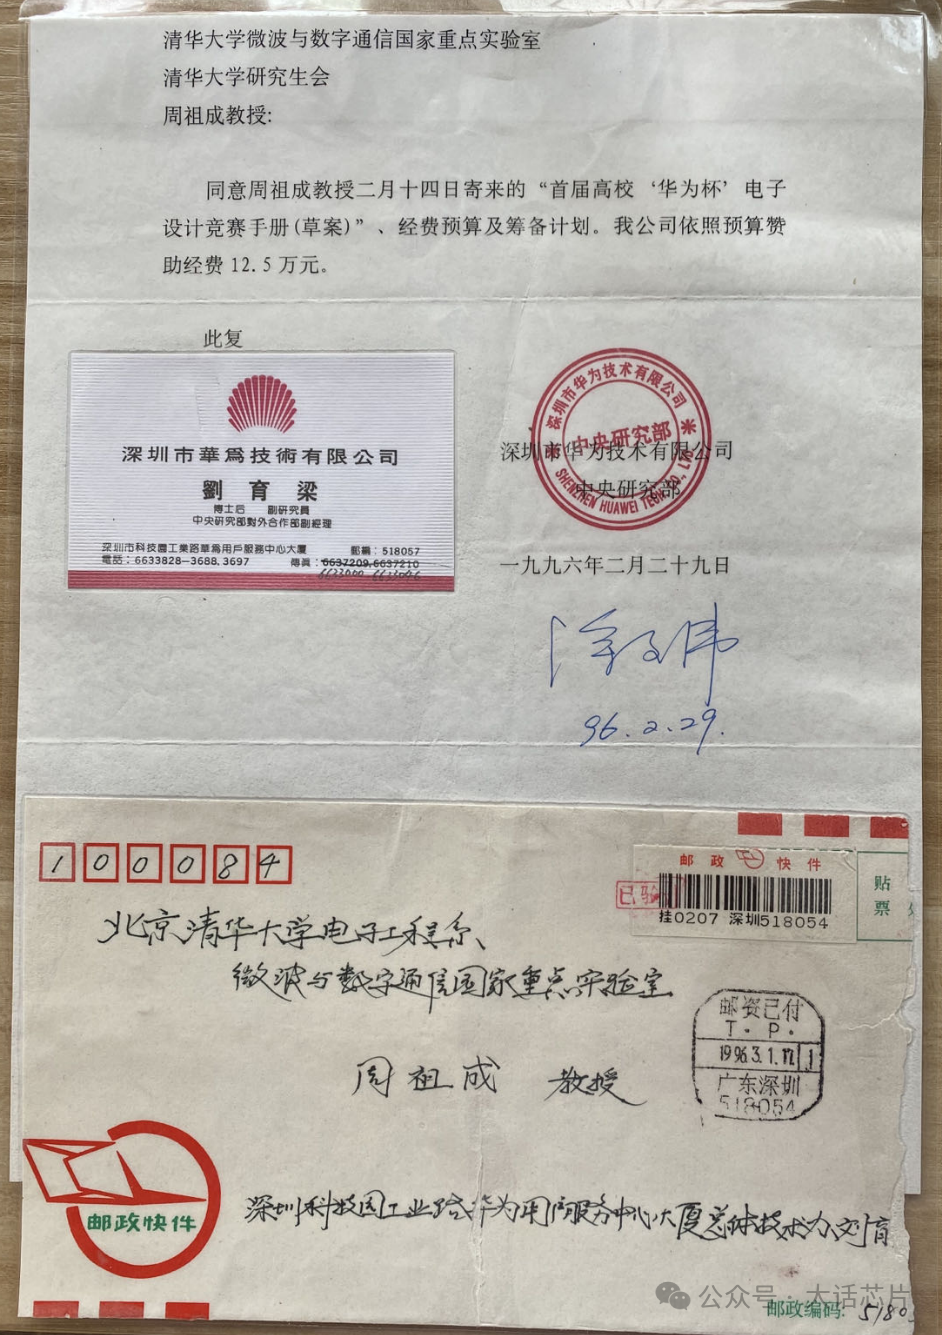 清华大学微波与数字通信国家重点实验室
清华大学研究生会
周祖成教授:
同意周祖成教授二月十四日寄来的“首届高校‘华为杯’电子
设计竞赛手册(草案)”、经费预算及筹备计划。我公司依照预算赞
助经费12.5万元。
此复
深圳市華為技術有限公司
劉育梁
博士后 副研究員
中央研究部對外合作部副經理
深圳市科技園工業路華為用戶服務中心大廈 郵編:518057
電話:6633828-3688,3697 傳真:6637209,6637210
深圳市华为技术有限公司
中央研究部
SHENZHEN HUAWEI TECH CO., LTD
深圳市华为技术有限公司
中央研究部
一九九六年二月二十九日
96.2.29.
100084
邮政快件
已验
挂0207 深圳518054
贴
票
北京清华大学电子工程系、
微波与数字通信国家重点实验室
周祖成 教授
邮资已付
T.P.
1996.3.1.
广东深圳
518054
邮政快件
深圳科技园工业路华为用户服务中心大厦总体技术办刘育
公众号·大话芯片
邮政编码: 5180